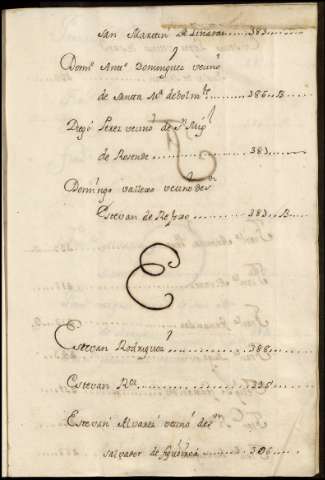 San Martin de Linares........383......
Domº Antº Dominguez vecino
de Santa Mª de ........386..B
Diego Perez vecino de Sn Migl
de Rosende..........383......
Domingo Vallexo vecino de Sn
Estevan de Refoxo..........383..B..
E
Estevan Rodriguez..........388....
Estevan Rz..........398....
Estevan Alvarez vecino de Sn
Salvador de ........306....